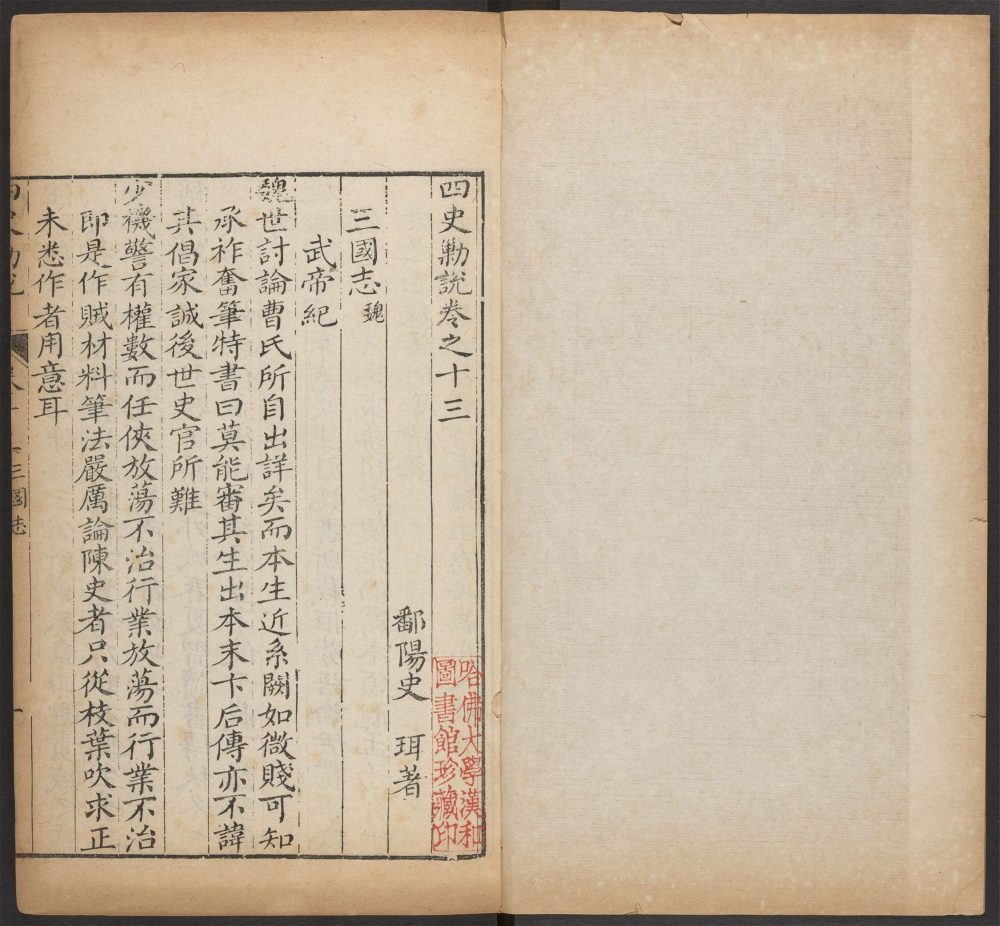 四史勦說卷之十三
哈佛大學漢和
圖書館珍藏印
鄱陽史 珥著
三國志 魏
武帝紀
魏世討論曹氏所自出詳矣而本生近系闕如微賤可知
承祚奮筆特書曰莫能審其生出本末卞后傳亦不諱
其倡家誠後世史官所難
少機警有權數而任俠放蕩不治行業放蕩而行業不治
即是作賊材料筆法嚴厲論陳史者只從枝葉吹求正
未悉作者用意耳
三國志